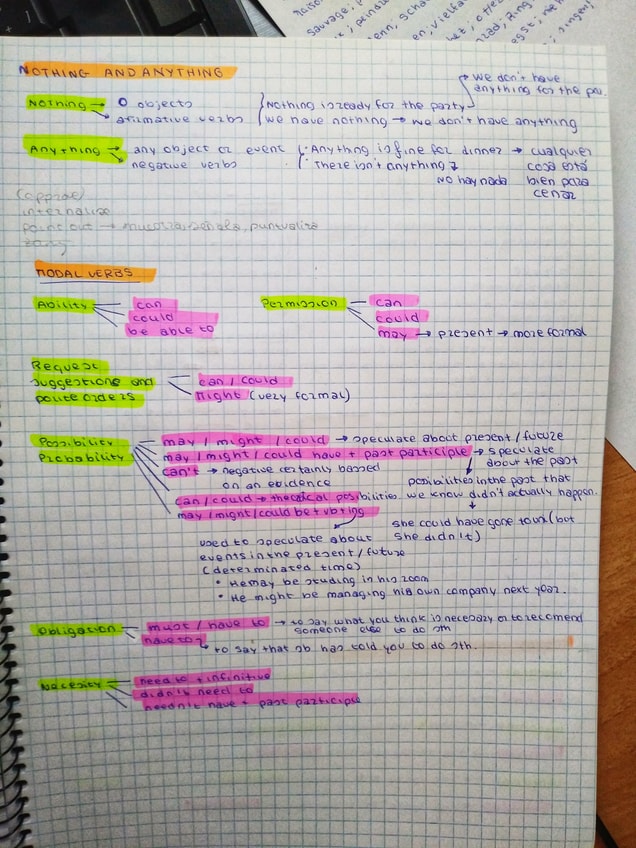 NOTHING AND ANYTHING
we don't have
anything for the pa.
Nothing → 0 objects
Nothing is ready for the party
→ afirmative verbs
we have nothing → we don't have anything
Anything → any object or event
Anything is fine for dinner → cualquier
cosa está
bien para
cenar
→ negative verbs
There isn't anything
No hay nada
internalize
point out → puntualize
MODAL VERBS
Ability
can
could
be able to
Permission
can
could
may → present → more formal
Request
suggestions and
polite orders
can / could
Might (very formal)
Possibility
Probability
may / might / could → speculate about present / future
may / might / could have + past participle → speculate
about the past
can't → negative certainly bassed
on an evidence
posibilities in the past that
we know didn't actually happen.
can / could → theorical posibilities
may / might / could be + vbting
she could have gone to uni (but
she didn't)
used to speculate about
events in the present / future
(determinated time)
• He may be studing in his room
• He might be managing his own company next year.
Obligation
must / have to → to say what you think is necessary or to recomend
someone else to do sth
have to
to say that sb has told you to do sth.
Necesity
need to + infinitive
didn't need to
needn't have + past participle